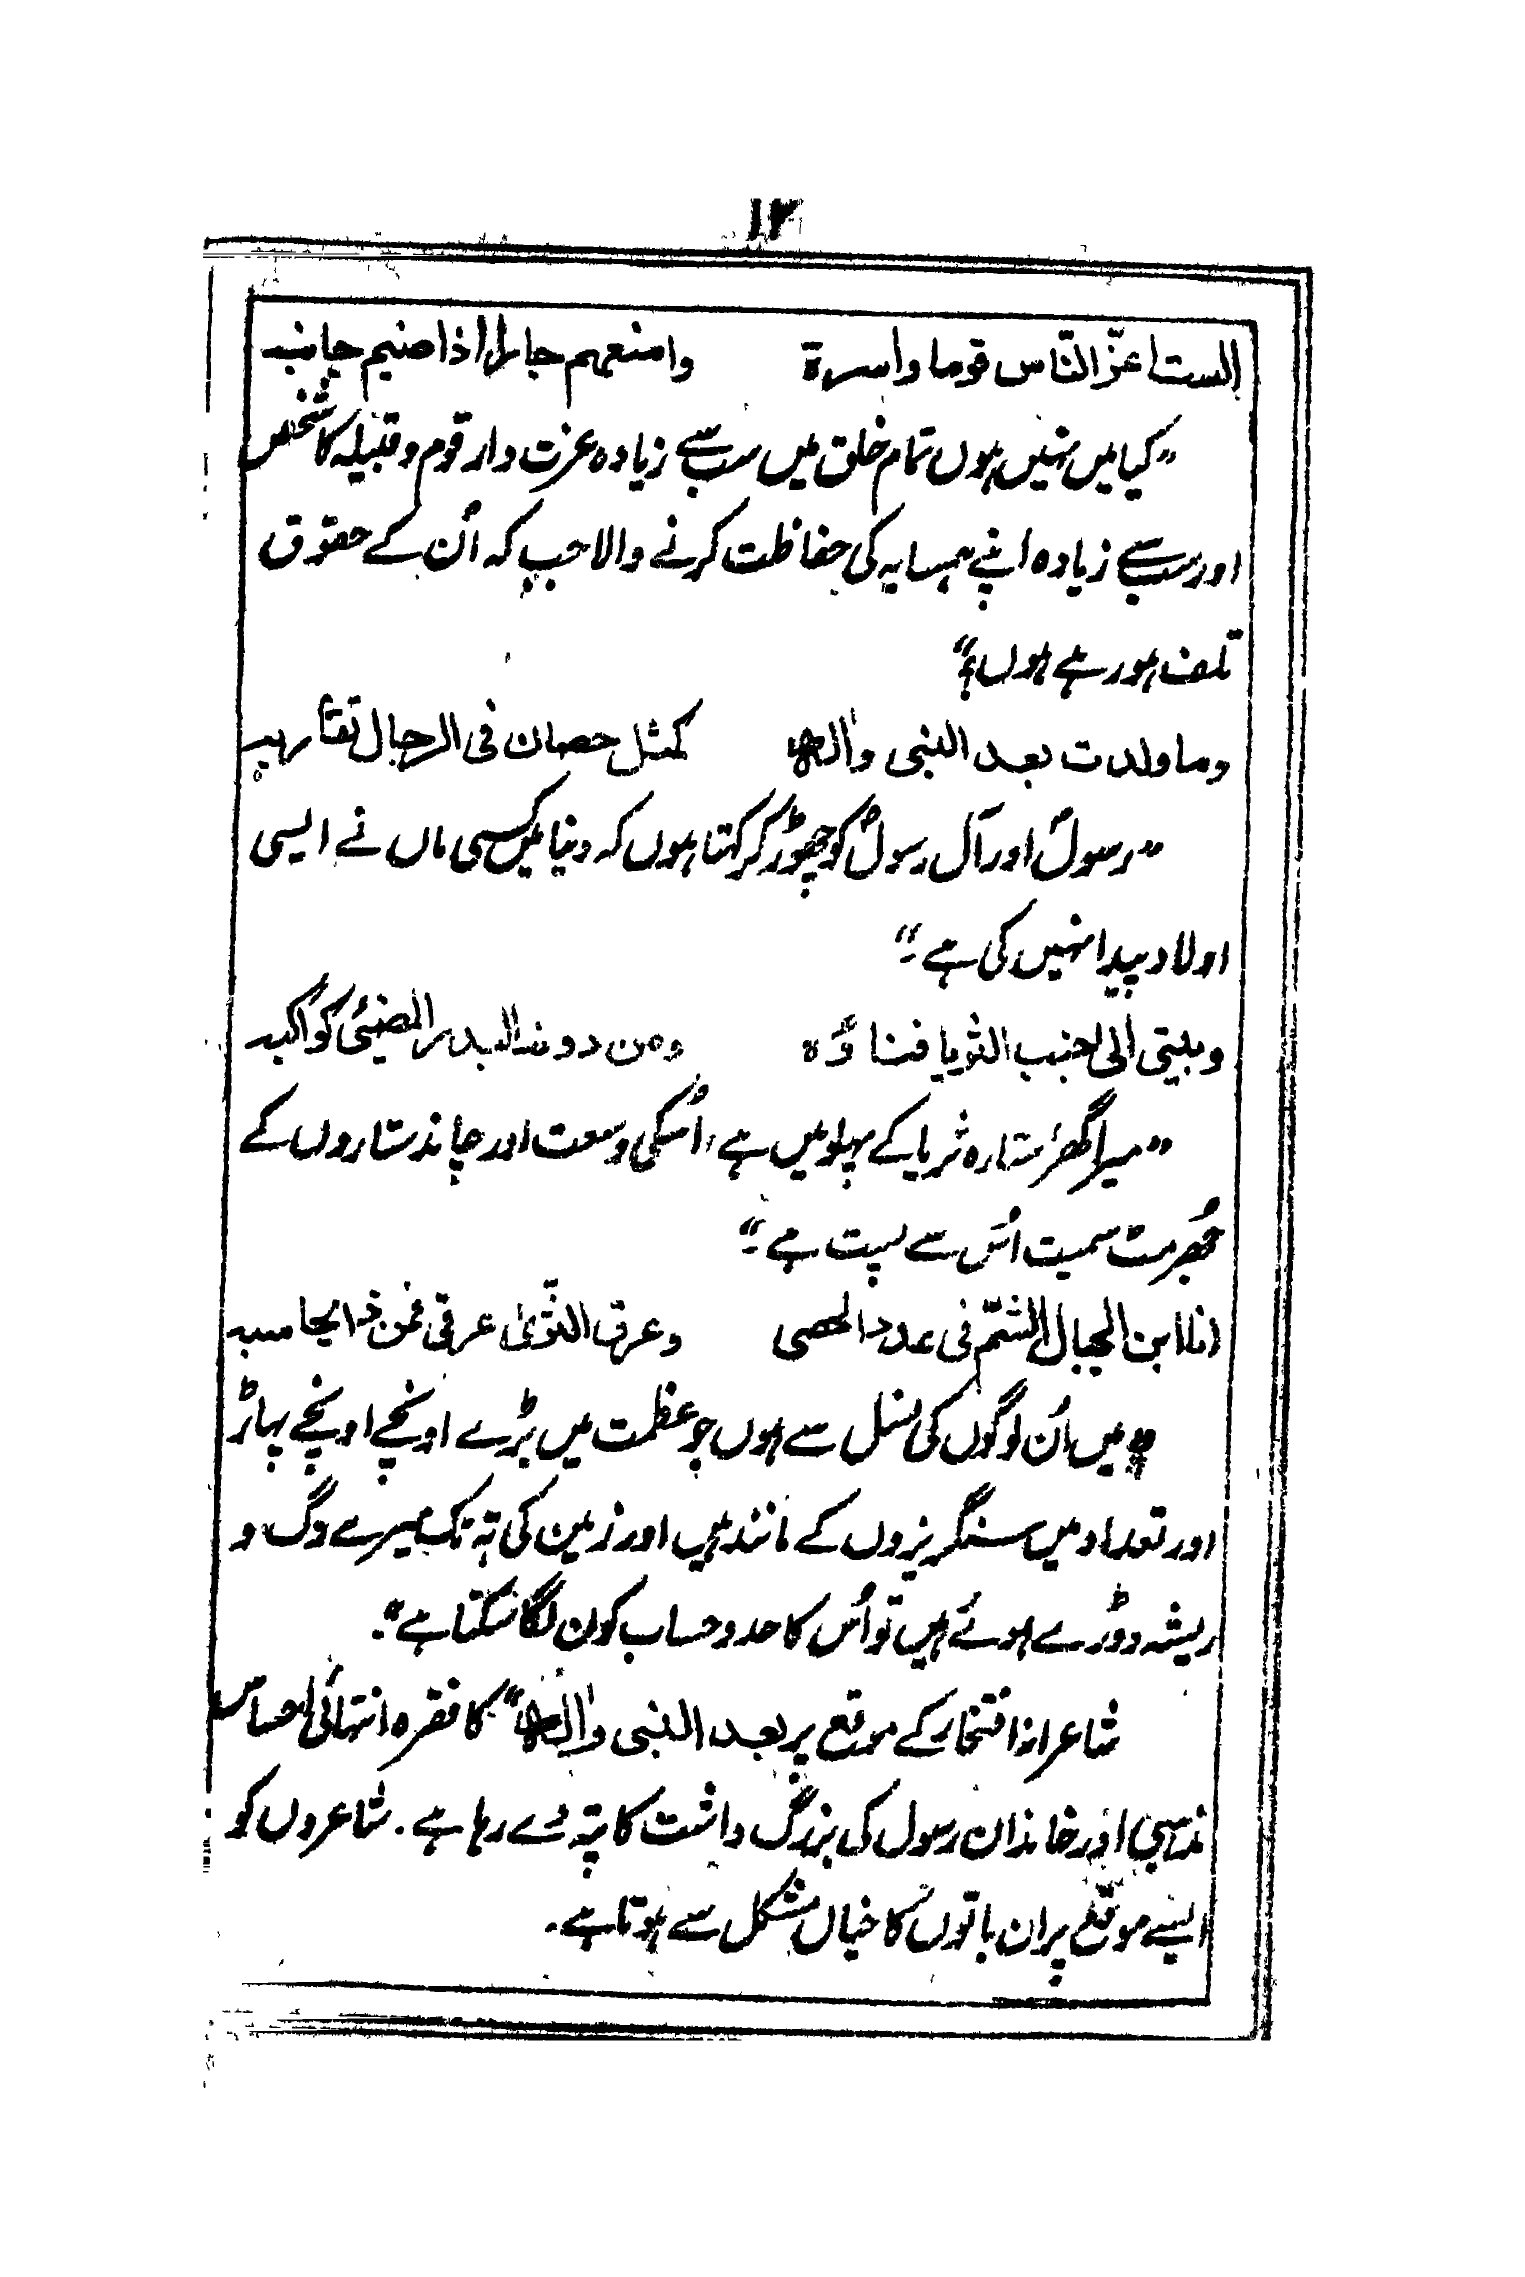 ۱۲
الست اعزّ النّاس قوما واسرة وامنعهم جارا اذا ضیم جانبه
”کیا میں نہیں ہوں تمام خلق میں سب سے زیادہ عزت دار قوم و قبیلہ کا شخص
اور سب سے زیادہ اپنے ہمسایہ کی حفاظت کرنے والا جب کہ اُن کے حقوق
تلف ہو رہے ہوں؟“
وما ولدت بعد النبی واٰلہ کمثل حصان فی الرجال تقاربه
”رسولؐ اور آل رسولؐ کو چھوڑ کر کہتا ہوں کہ دنیا میں کسی ماں نے ایسی
اولاد پیدا نہیں کی ہے۔“
وبیتی الی جنب الثریا فناؤہ ومن دونہ البدر المضیئ کواکبہ
”میرا گھر ستارہ ثریا کے پہلو میں ہے، اُسکی وسعت اور چاند ستاروں کے
جُھرمٹ سمیت اُس سے پست ہے۔“
انا ابن الجبال الشمّ فی عدد الحصی وعرق الثریٰ عرقی فمن ذا یحاسبہ
”میں اُن لوگوں کی نسل سے ہوں جو عظمت میں بڑے اونچے اونچے پہاڑ
اور تعداد میں سنگریزوں کے مانند ہیں اور زمین کی تہ تک میرے رگ و
ریشہ دوڑے ہوئے ہیں تو اُس کا حد و حساب کون لگا سکتا ہے“۔
شاعرانہ افتخار کے موقع پر بعد النبی واٰلہ“ کا فقرہ انتہائی احساس
مذہبی اور خاندان رسول کی بزرگ داشت کا پتہ دے رہا ہے۔ شاعروں کو
ایسے موقع پر ان باتوں کا خیال مشکل سے ہوتا ہے۔